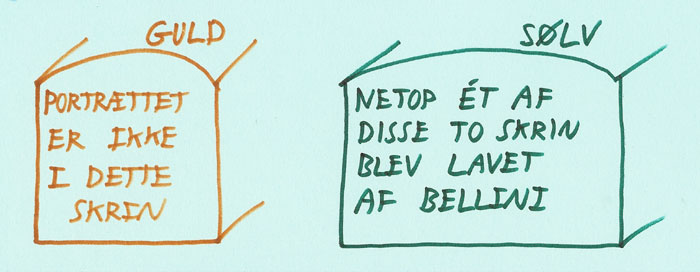 GULD
PORTRÆTTET
ER IKKE
I DETTE
SKRIN
SØLV
NETOP ÉT AF
DISSE TO SKRIN
BLEV LAVET
AF BELLINI